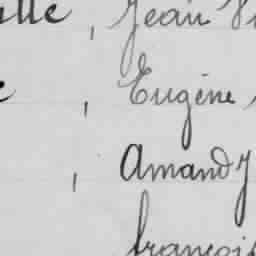 , Jean
, Eugène
, Amand J
françois